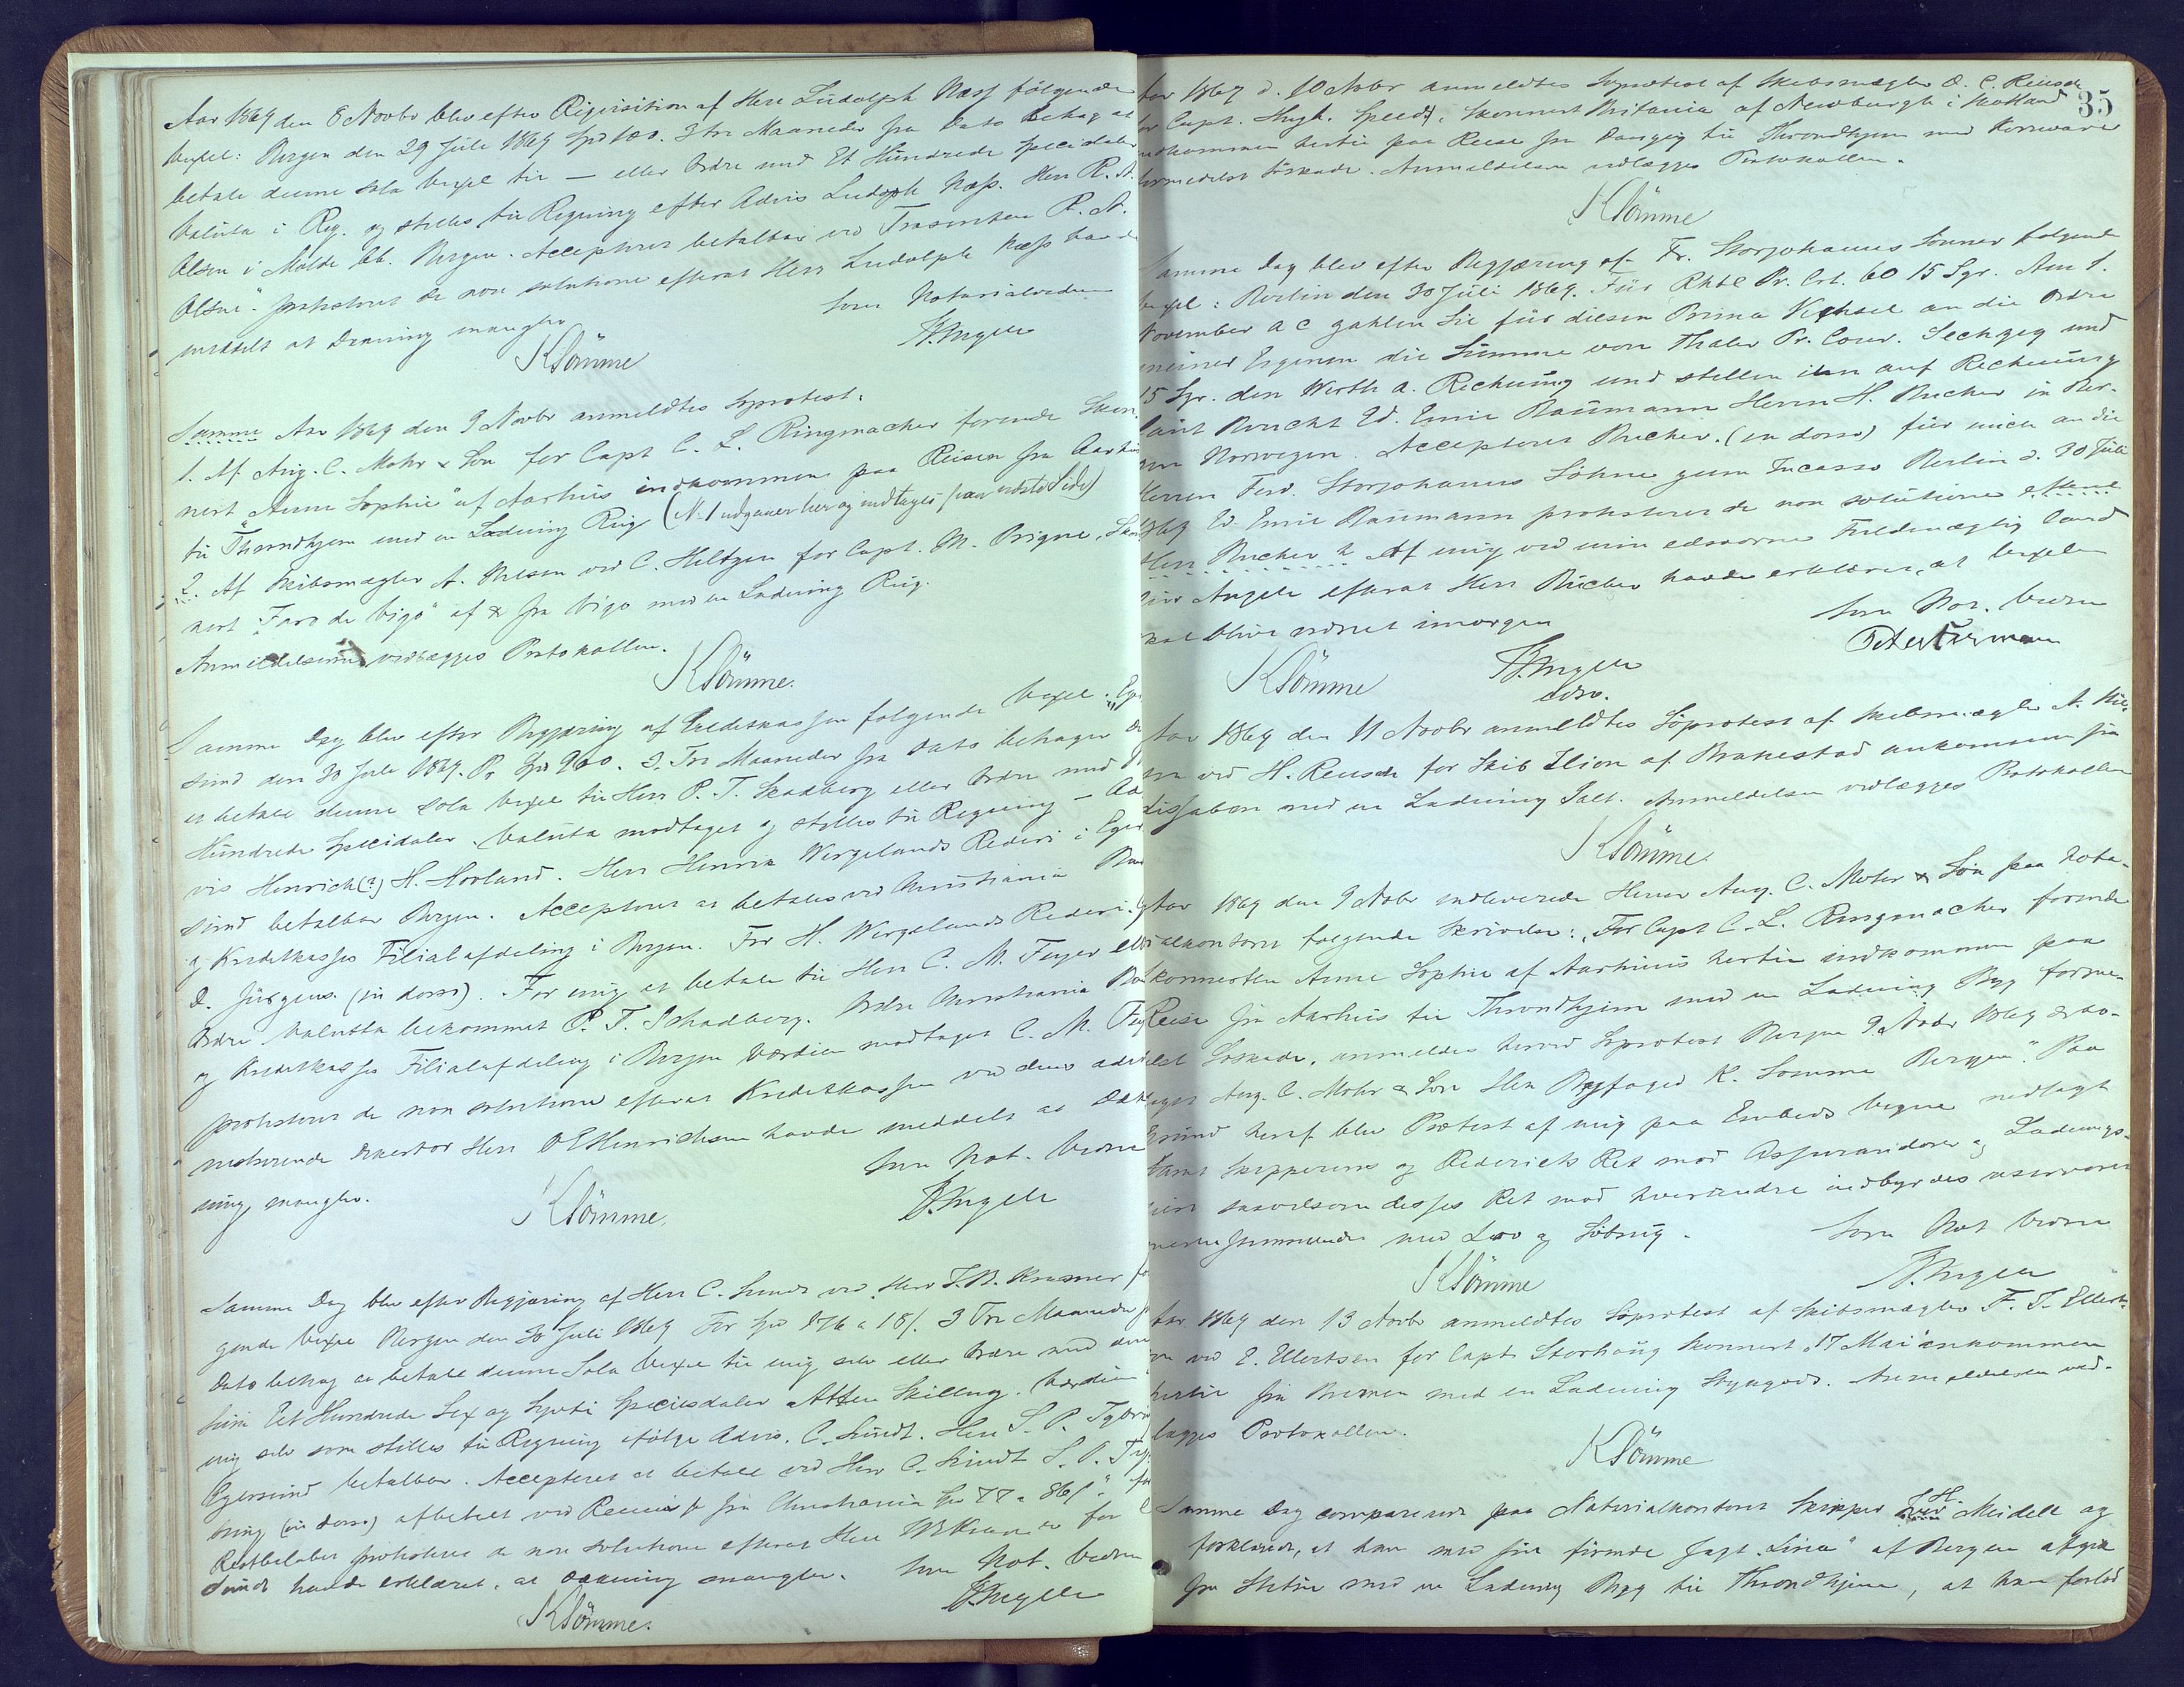 Aar 1869 den 8 Novbr blev efter Requisition af Herr Ludolph Næss følgende
Vexel: Bergen den 29 Juli 1869 Spd 100. 3 tre Maaneder fra Dato behag at
betale denne sola Vexel til — eller Ordre med Et Hundrede Speciedaler
Valuta i Reg. og stilles til Regning efter Advis Ludolph Næss. Herr R. A.
Olsen i Molde bb. Bergen. Accepteret betalbar ved R. A.
Olsen". protesteret de non solutione efterat Herr Ludolph Næss havde
meddelt at Dækning mangler
Som Notarialvidne
KSömme
Samme Aar 1869 den 9 Novbr anmeldtes Søprotest.
1. Af Aug. C. Mohr & Søn for Capt C. L. Ringmacher førende Skon-
nert "Anne Sophie" af Aarhus indkommen paa Reisen fra Aarhus
til Throndhjem med en Ladning Rug (N. 1 udgaaer her og indtages paa næste Side)
2. Af Skibsmægler A. Nielsen ved C. Heltzen for Capt. M. Brigne, Skon-
nert "Faro de Vigo" af & fra Vigo med en Ladning Rug.
Anmeldelserne vedlægges Protokollen.
KSömme.
Samme Dag blev efter Begjæring af Creditkassen følgende Vexel: "Eger
sund den 30 Juli 1869. Pr Spd 900. 3. Tre Maaneder fra Dato behager De
at betale denne sola Vexel til Herr P. T. Skadberg eller Ordre med
Hundrede Speciedaler. Valuta modtaget og stilles til Regning — Ad
vis Henrich(?) H. Hovland. Herr Henrik Wergelands Rederi i Eger
sund betalbar Bergen. Accepteret at betales ved Christiania Bank
og Kreditkasses Filialafdeling i Bergen. For H. Wergelands Rederi.
D. Jürgens. (in dorso). For mig at betale til Herr C. M. Feyer eller
Ordre Valutta bekommet P. T. Schadberg. Ordre Christiania Bank
og Kreditkasses Filialafdeling i Bergen Værdien modtaget C. M. Fey
protesteret de non solutione efterat Kreditkassen ved dens admi
nistrerende Direktør Herr O E Henrichsen havde meddelt at Dæk
ning mangler.
Som Not. Vidne
KSömme.
Samme Dag blev efter Begjæring af Herr C. Sundt ved Herr F. B. Kramer føl
gende Vexel Bergen den 30 Juli 1869 For Spd 176 " 18/. 3 Tre Maaneder fra
Dato behag at betale denne Sola Vexel til mig selv eller Ordre med den
Sum Et Hundrede Sex og Sytti Speciesdaler Atten Skilling. Værdien
mig selv som stilles til Regning ifølge Advis. C. Sundt. Herr S. P.
Egersund betalbar. Accepteret at betale ved Herr C. Sundt S. P.
bring (in dorso) afbetalt ved fra Christiania Spd 77 " 86/."
Restbeløbet protesteret de non solutione efterat Herr Kramer for C
Sundt havde erklæret, at Dækning mangler.
Som Not. Vidne
KSömme.
35
Aar 1869 d. 10 Novbr anmeldtes Søprotest af Skibsmægler O. C. Reusch
for Capt. Hugh. Speed, Skonnert Britania af Newburgh i Skotland
indkommen hertil paa Reise fra Danzig til Throndhjem med Kornvare
formedelst Søskade. Anmeldelsen vedlægges Protokollen.
KSömme
Samme Dag blev efter Begjæring af Fr. Storjohanns Sønner følgende
Vexel: Berlin den 30 Juli 1869. Für Rhtl Pr. Crt. 60 15 Sgr. Am 1.
November a c zahlen Sie für diesen Prima Wechsel an die Ordre
meiner Eigenen die Summe von Thaler Pr. Cour. Sechzig und
15 Sgr. den Werth a. Rechnung und stellen ihn auf Rechnung
laut Bericht Ed. Emil Baumann Herrn H. Bucher in Ber-
gen Norwegen. Accepteret Bucher. (in dorso) für mich an die
Herren Ferd. Storjohanns Söhne zum Incasso Berlin d. 30 Juli
1869 Ed. Emil Baumann protesteret de non solutione efterat
Herr Bucher h Af mig ved min edsvorne Fuldmægtig Cand
jur Angell efterat Herr Bücher havde erklæret, at Vexelen
skal blive ordnet imorgen
Som Not. Vidne
KSömme
Aar 1869 den 11 Novbr anmeldtes Søprotest af Skibsmægler A. Niel-
sen ved H. Reusch for Skib Ilion af Brakestad ankommen fra
Lissabon med en Ladning Salt. Anmeldelsen vedlægges Protokollen
KSömme.
Aar 1869 den 9 Novbr indleverede Herrer Aug. C. Mohr & Søn paa Nota-
rialkontoret følgende Skrivelse: "For Capt C. L. Ringmacher førende
Skonnerten Anne Sophie af Aarhuus hertil indkommen paa
Reise fra Aarhus til Throndhjem med en Ladning Byg forme-
delst Søskade, anmeldes herved Søprotest Bergen 9. Novbr 1869
Aug. C. Mohr & Søn Herr Byfoged K. Sömme Bergen". Paa
Grund heraf blev Protest af mig paa Embeds Vegne nedlagt
samt Skipperens og Rederiets Ret mod Assurandører og Ladnings-
eiere saavelsom disses Ret mod hverandre indbyrdes reserveret
overensstemmende med Lov og Søbrug.
Som Not Vidne
KSömme
Aar 1869 den 13 Novbr anmeldtes Søprotest af Skibsmægler F. T. Ellert-
sen ved E. Ellertsen for Capt Storhaug Skonnert "17 Mai" ankommen
hertil fra Bremen med en Ladning Stykgods. Anmeldelsen ved-
lægges Protokollen.
KSömme
Samme Dag comparerede paa Notarialkontoret Skipper H. Meidell og
forklarede, at han med sin førende Jagt "Lina" af Bergen afgik
fra Stettin med en Ladning Byg til Throndhjem, at han forlod